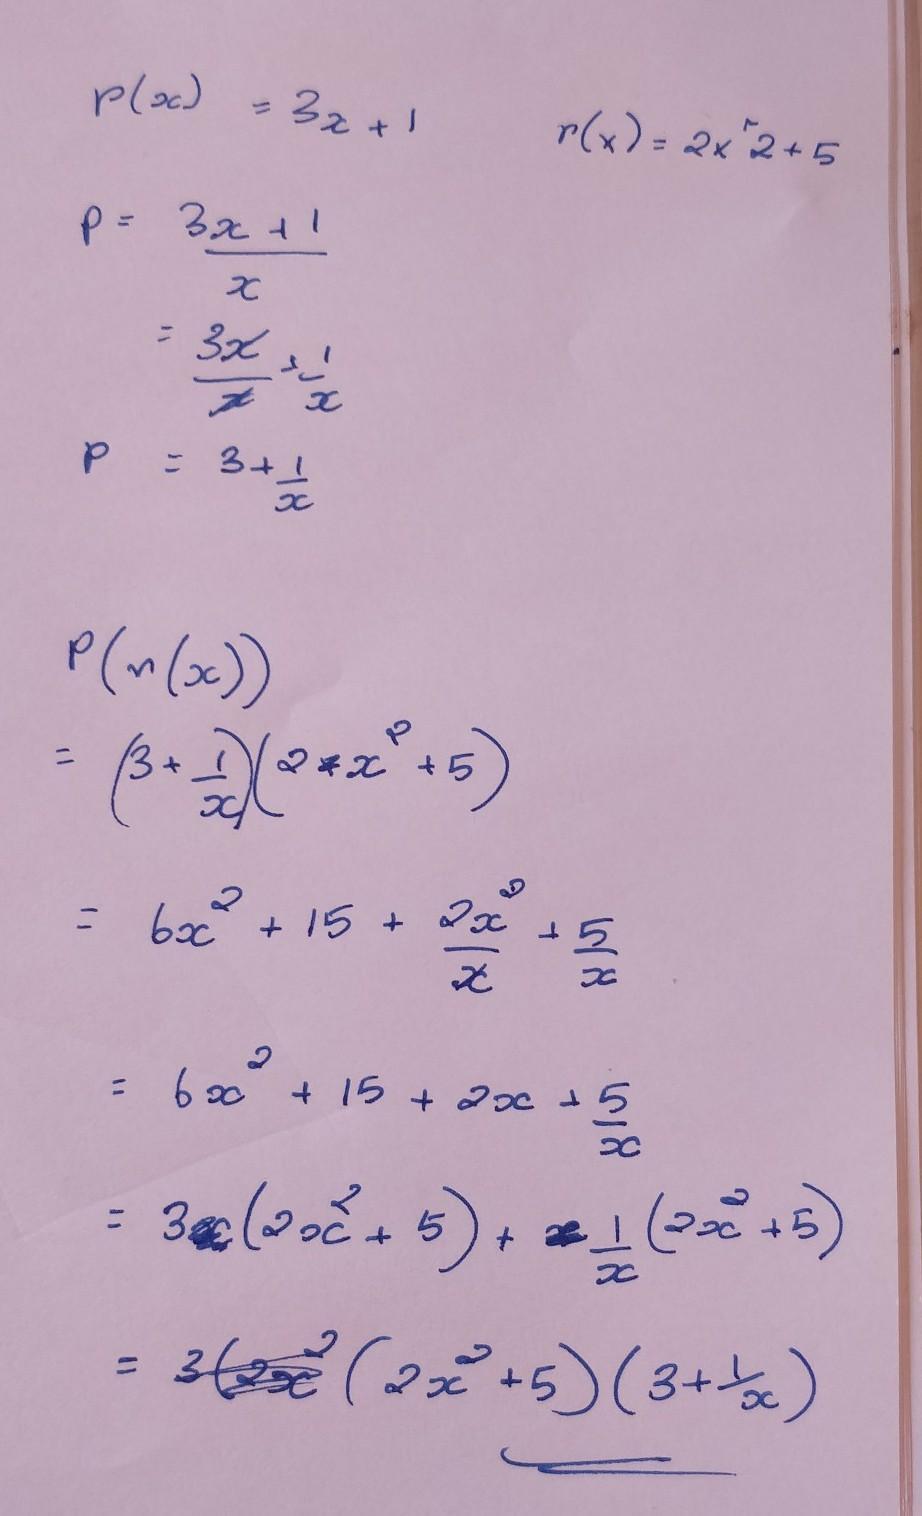 p(x) = 3x + 1
r(x) = 2x^2 + 5
P = 3x + 1
x
= 3x/x + 1/x
P = 3 + 1/x
P(r(x))
= (3 + 1/x)(2 * x² + 5)
= 6x² + 15 + 2x²/x + 5/x
= 6x² + 15 + 2x + 5/x
= 3(2x² + 5) + 1/x (2x² + 5)
= 3 (2x² (2x² + 5)(3 + 1/x)